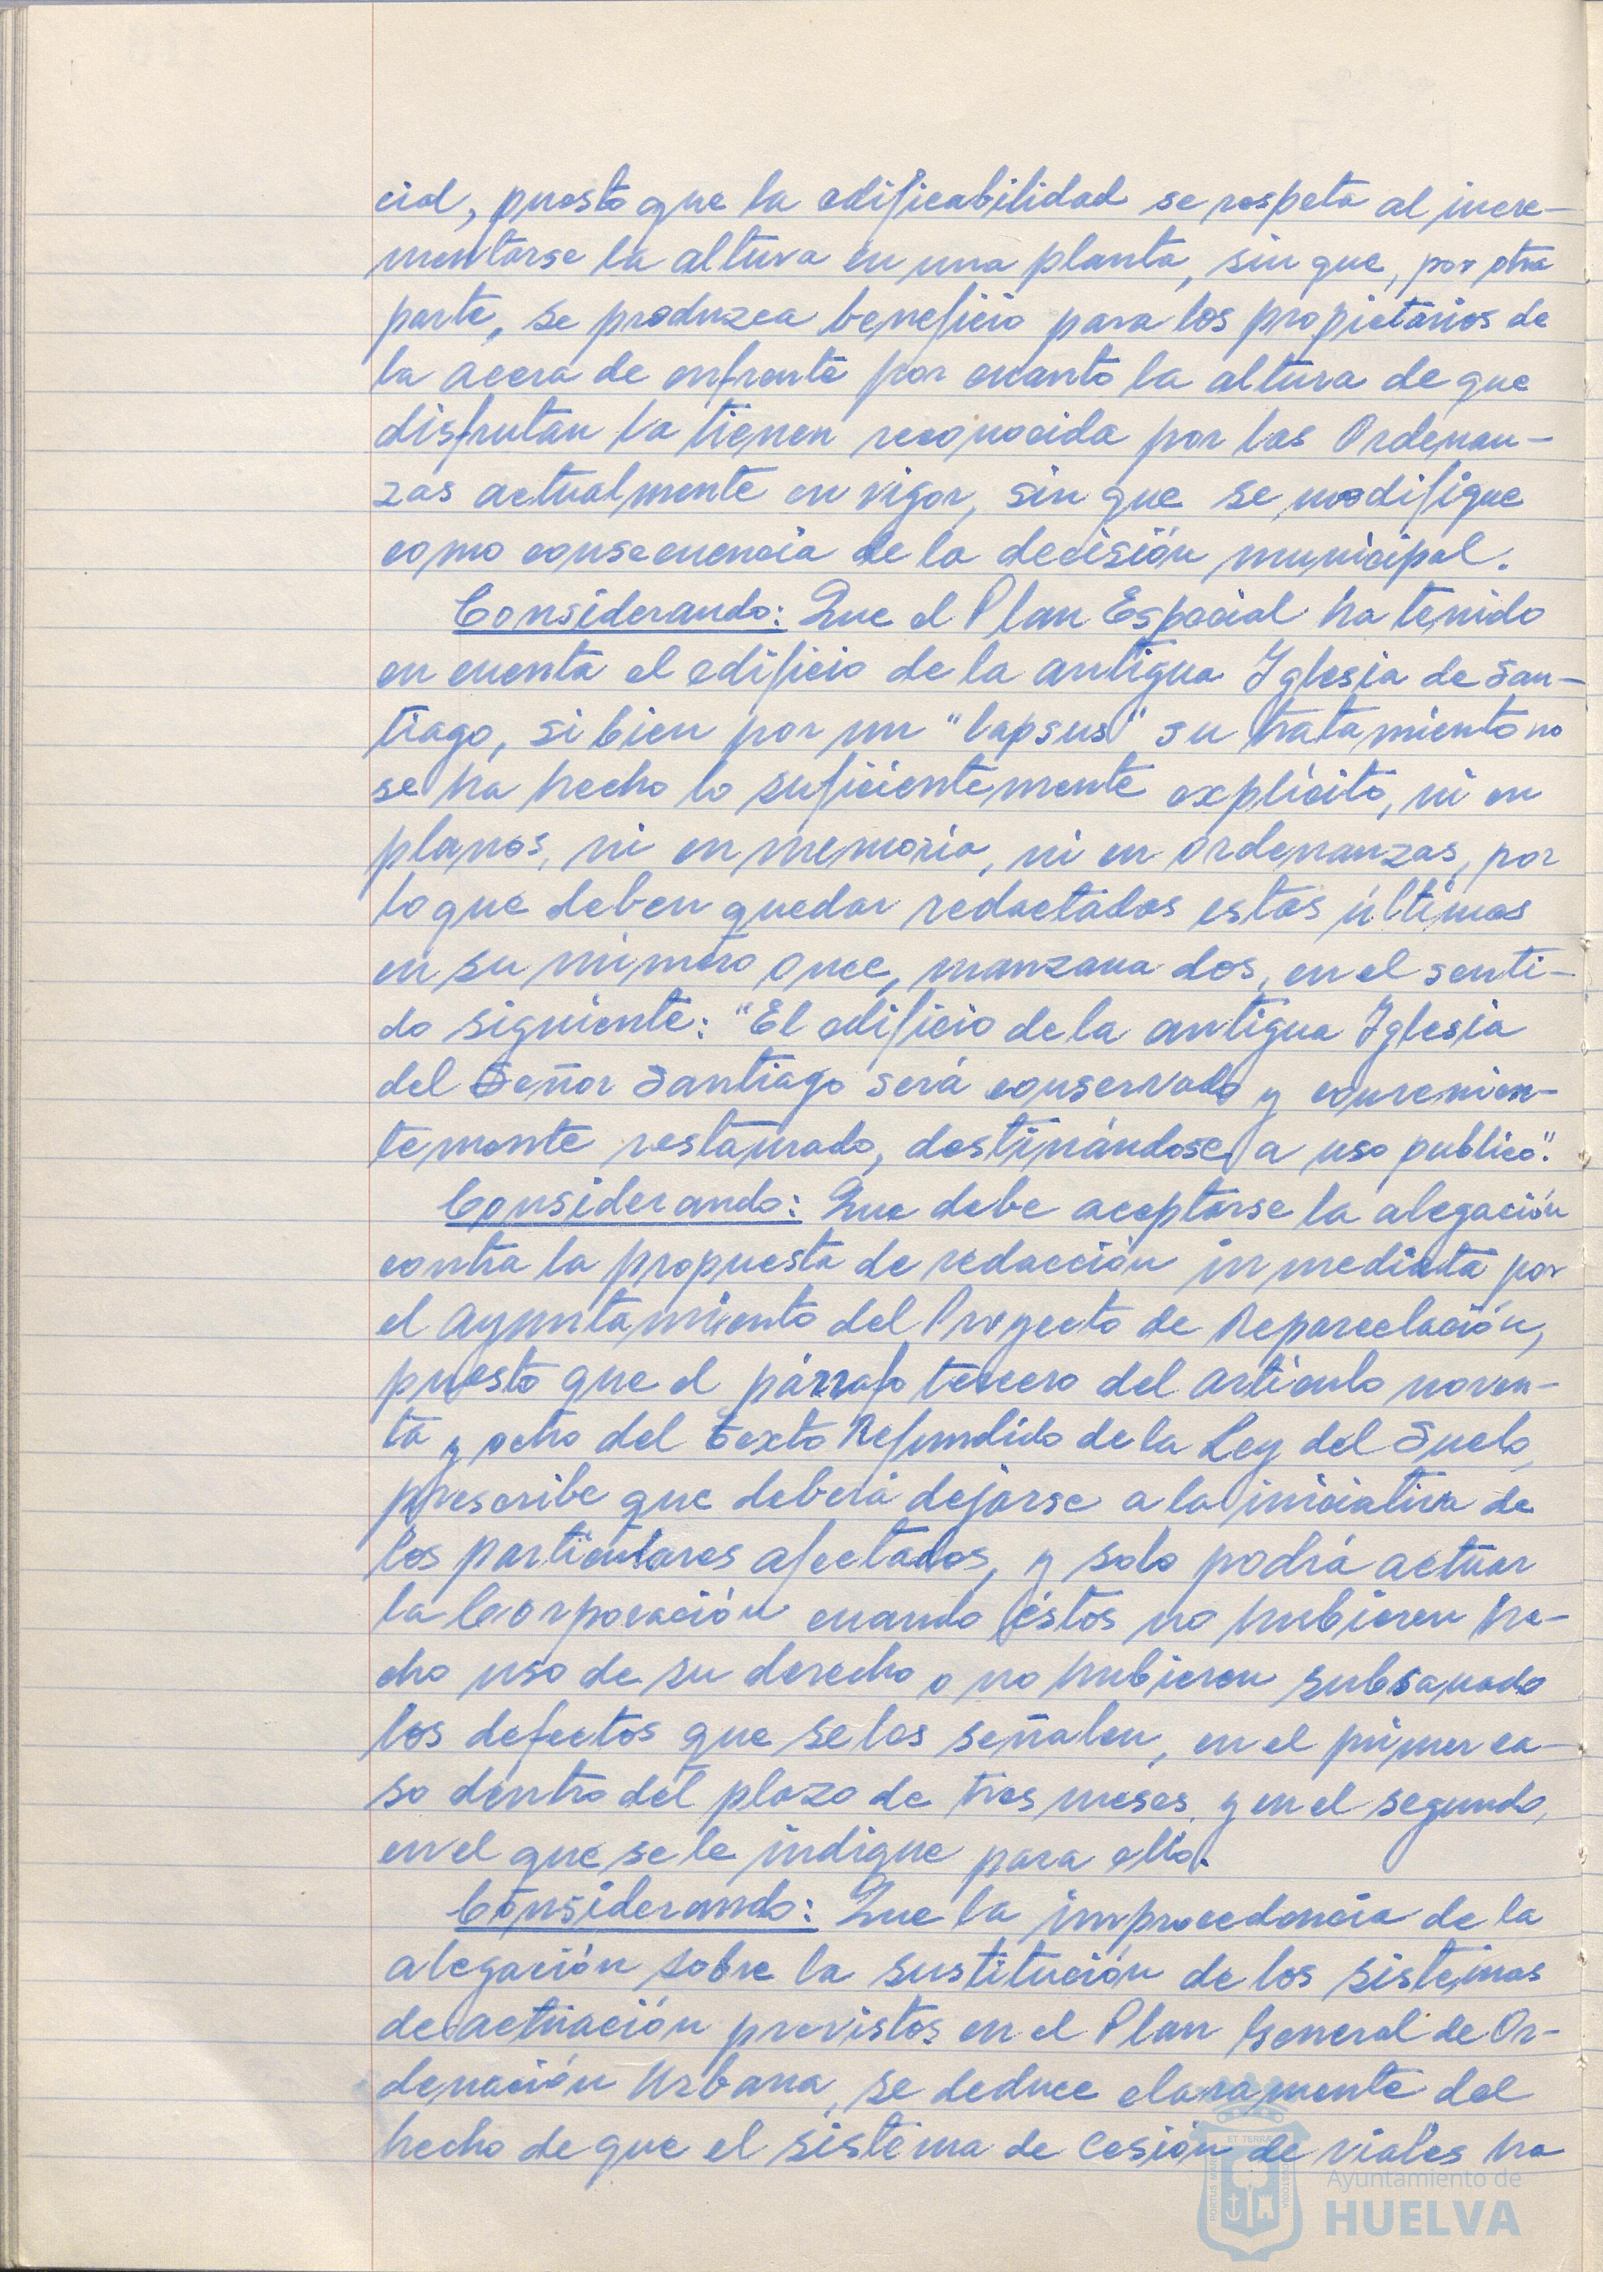 cial, puesto que la edificabilidad se respeta al incre-
mentarse la altura en una planta, sin que, por otra
parte, se produzca beneficio para los propietarios de
la acera de enfrente por cuanto la altura de que
disfrutan la tienen reconocida por las Ordenan-
zas actualmente en vigor, sin que se modifique
como consecuencia de la decisión municipal.
Considerando: Que el Plan Especial ha tenido
en cuenta el edificio de la antigua Iglesia de San-
tiago, si bien por un "lapsus" su tratamiento no
se ha hecho lo suficientemente explícito, ni en
planos, ni en memoria, ni en ordenanzas, por
lo que deben quedar redactadas estas últimas
en su número once, manzana dos, en el senti-
do siguiente: "El edificio de la antigua Iglesia
del Señor Santiago será conservado y convenien-
temente restaurado, destinándose a uso publico".
Considerando: Que debe aceptarse la alegación
contra la propuesta de redacción inmediata por
el Ayuntamiento del Proyecto de Reparcelación,
puesto que el párrafo tercero del artículo noven-
ta y ocho del Texto Refundido de la Ley del Suelo,
prescribe que deberá dejarse a la iniciativa de
los particulares afectados, y solo podrá actuar
la Corporación cuando éstos no hubieren he-
cho uso de su derecho o no hubieren subsanado
los defectos que se les señalen, en el primer ca-
so dentro del plazo de tres meses, y en el segundo,
en el que se le indique para ello.
Considerando: Que la improcedencia de la
alegación sobre la sustitución de los sistemas
de actuación previstos en el Plan General de Or-
denación Urbana, se deduce claramente del
hecho de que el sistema de cesión de viales ha
ET TERRAE
PORTUS MARIS
CUSTODIA
Ayuntamiento de
HUELVA